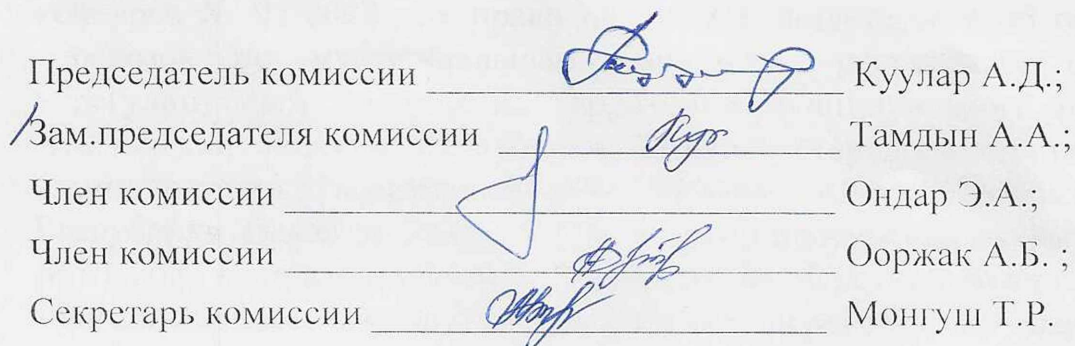 Председатель комиссии Куулар А.Д.;
Зам.председателя комиссии Тамдын А.А.;
Член комиссии Ондар Э.А.;
Член комиссии Ооржак А.Б. ;
Секретарь комиссии Монгуш Т.Р.